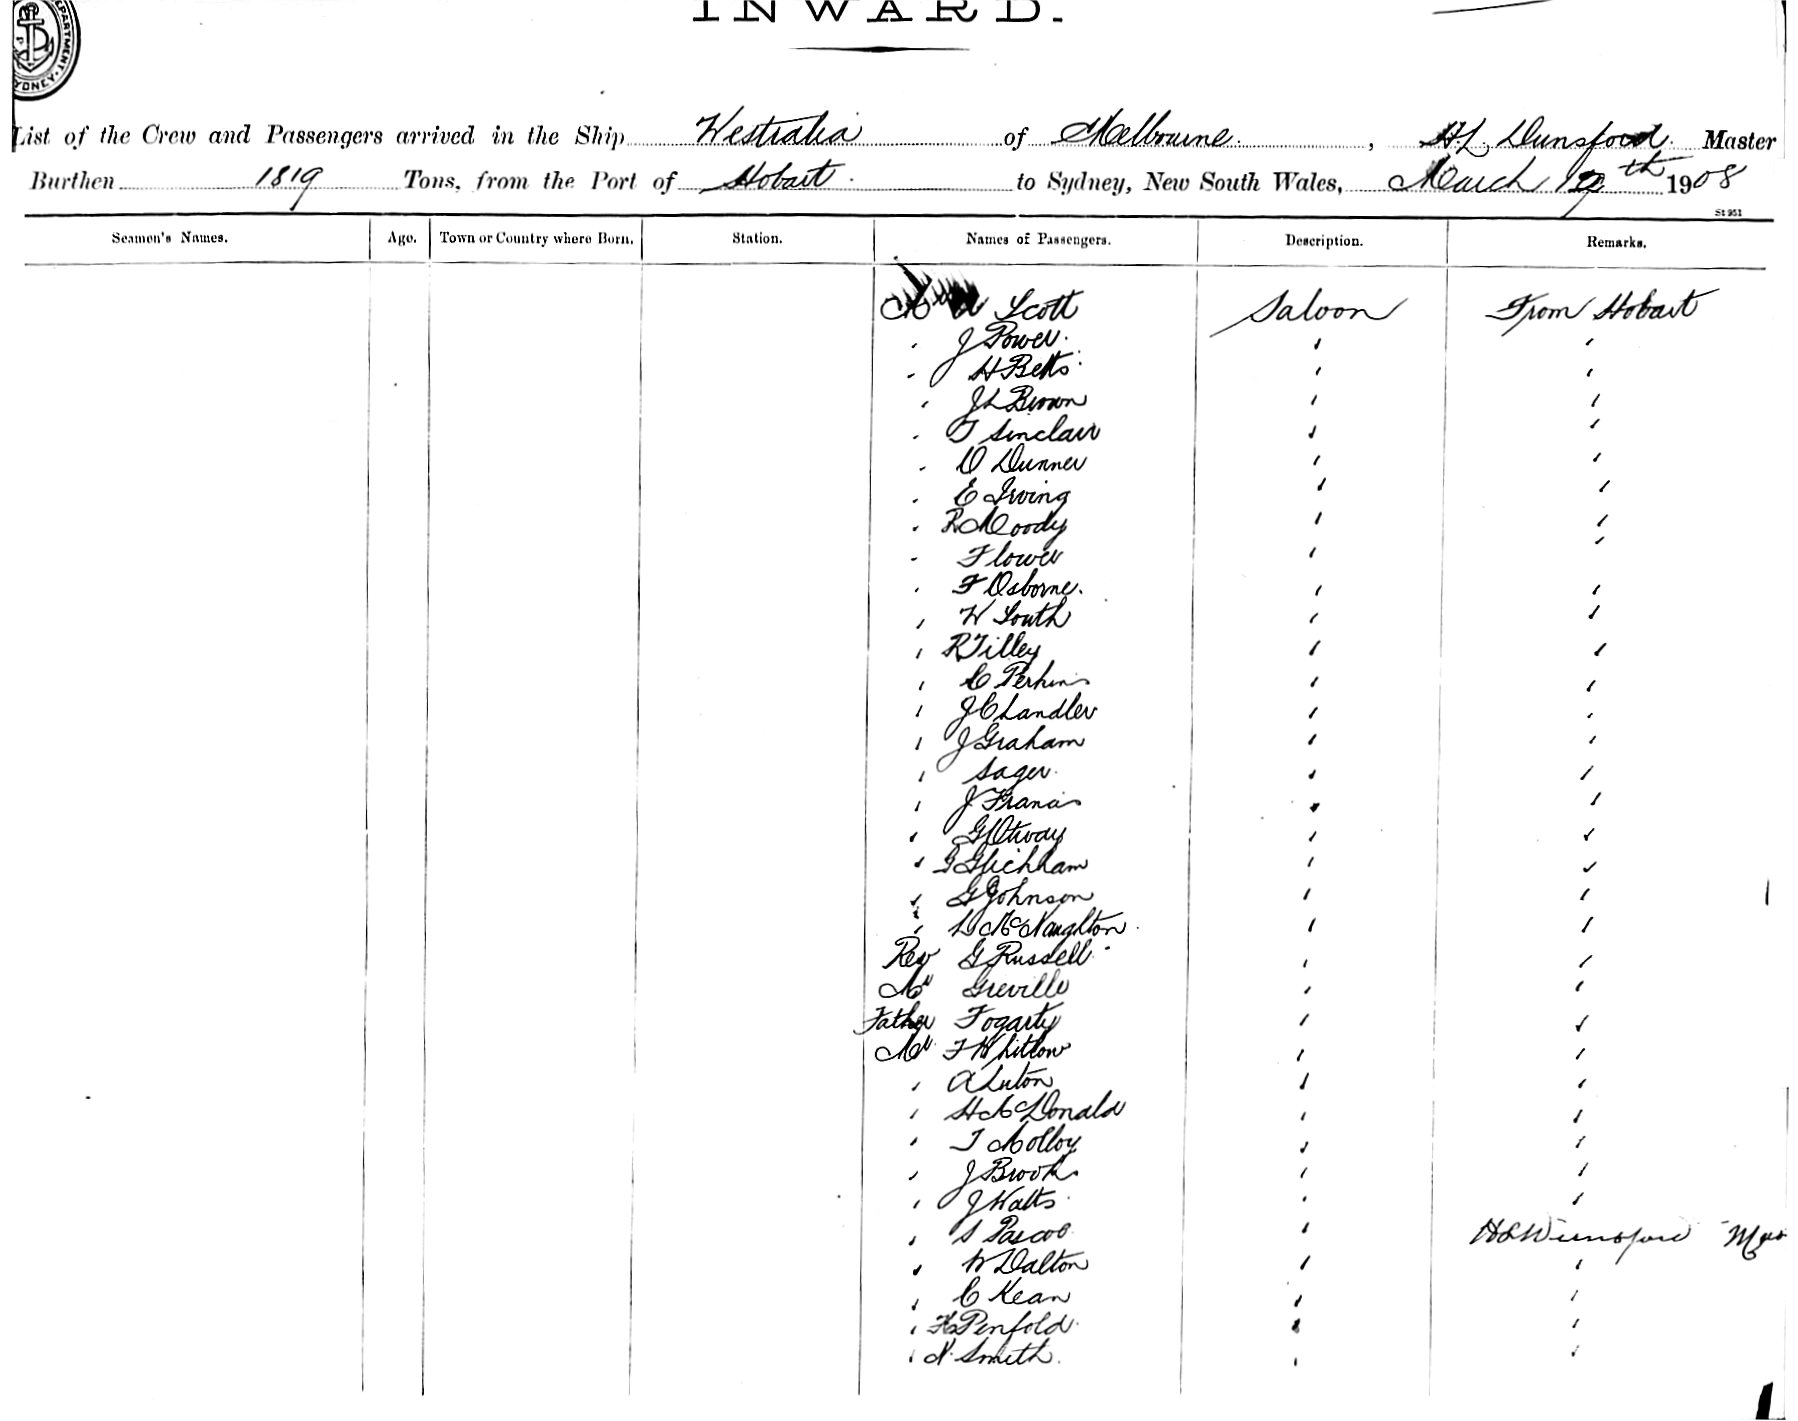 INWARD.
DEPARTMENT. SYDNEY.
List of the Crew and Passengers arrived in the Ship Westralia of Melbourne, H.L. Dunsford Master
Burthen 1819 Tons, from the Port of Hobart to Sydney, New South Wales, March th 1908
St 951
Seamen's Names. Age. Town or Country where Born. Station. Names of Passengers. Description. Remarks.
Mr Scott Saloon From Hobart
J Power
H Betts
J L Brown
T Sinclair
D Dunner
E Irving
R Moody
Flower
F Osborne
W South
R Tilley
C Perkins
J Chandler
J Graham
Sager
J Francis
G Otway
G
G Johnson
D McNaughton
Rev G Russell
Mr Greville
Father Fogarty
Mr F Whitlow
A Luton
H McDonald
T Molloy
J Brook
J Watts
S Pascoe H L Dunsford
W Dalton
C Kean
H Penfold
N Smith